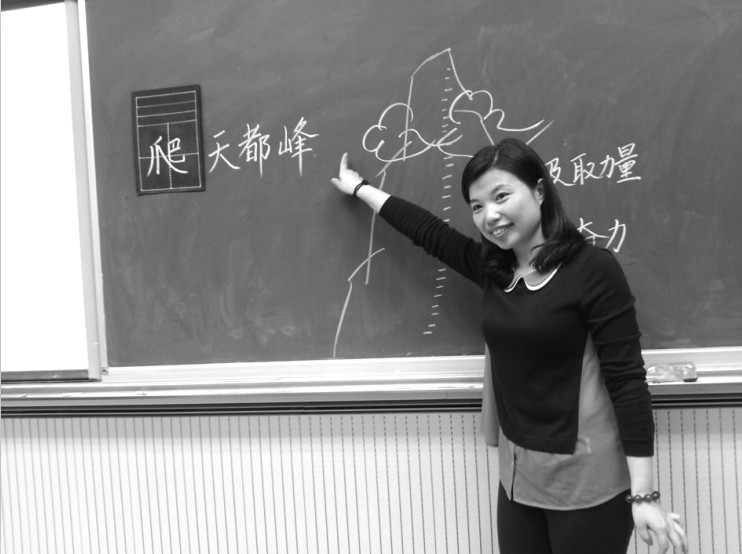 爬天都峰
取力量
力